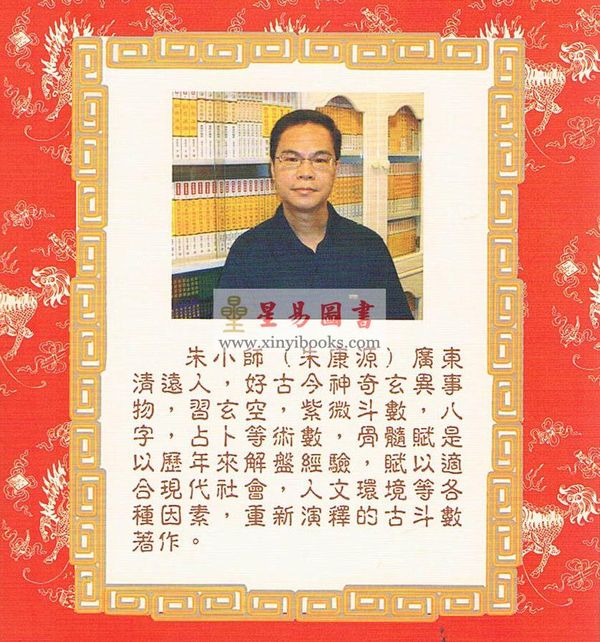 星易圖書
www.xinyibooks.com
朱小師（朱康源）廣東
清遠人，好古今神奇玄異事
物，習玄空，紫微斗數，八
字，占卜等術數，骨髓賦是
以歷年來解盤經驗，賦以適
合現代社會，人文環境等各
種因素，重新演釋的古斗數
著作。